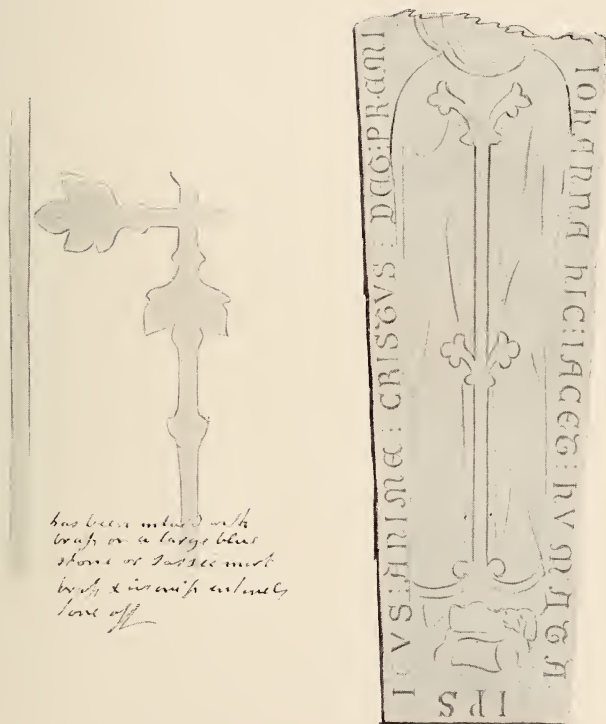 has been inlaid with
brass on a large blue
stone or
brass & entirely
tore off
IOHANNA HIC:IACET:HVMATA
IPS
IVS:ANIME:CRISTVS:DET:PREMI